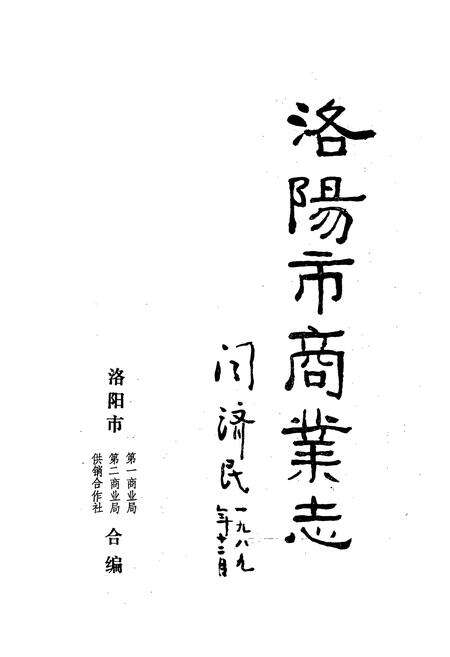 洛陽市商業志
闫济民
一九八九
年十二月
洛阳市
第一商业局
第二商业局
供销合作社
合编